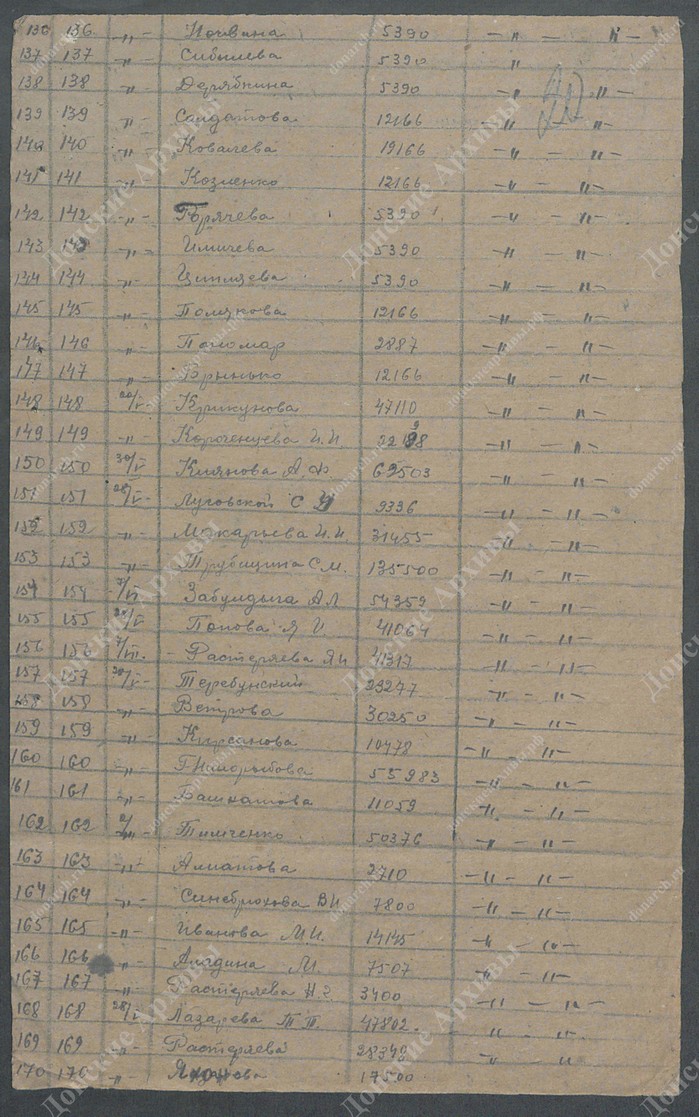 136 136 -"- 5390 -"- "-
137 137 -"- Сибилева 5390 "
138 138 " Дерябкина 5390 -" "-
139 139 -"- Солдатова 12166 -" "-
140 140 -"- Ковалева 19166 -" - "-
141 141 -"- Козменко 12166 -" - "-
142 142 -"- Горячева 5390 -" - "-
143 143 -"- 5390 -" - "-
144 144 -"- 5390 -" - "-
145 145 -"- Полякова 12166 -" - "-
146 146 " Пономар 2887 -" - "-
147 147 -"- Гринько 12166 -" - "-
148 148 Крикунова 47110 -" - "-
149 149 -"- Короченцева И.И -" - "-
150 150 30/V Климова А.Ф 69503 -" - "-
151 151 Луговской С 9336 -" - "-
152 152 -"- Макарьева И.И 31455 -" - "-
153 153 -"- Трубицина С.М. 135500 -" - "-
154 154 7/VI Забулдыга А Л 54359 -" - "-
155 155 Попова Я И 41064 -" - "-
156 156 - Растеряева 41317 -" - "-
157 157 Теребунский 29277 -" - "-
158 158 -"- Ветрова 30250 -" - "-
159 159 -"- Кирсанова 10478 -" "-
160 160 -"- 55983 -" - "-
161 161 -"- Башкатова 11059 -" - "-
162 162 Тимченко 50376 -" - "-
163 163 -"- Алпатова 2710 -" - "-
164 164 -"- Синебрюхова В И 7800 -" - "-
165 165 -"- Иванова М.И. 14145 -" - "-
166 166 " Аладина М. 7507 -" - "-
167 167 -"- Растеряева Н 3400 -" - "-
168 168 28/V Лазарева Т П. 47802. -" - "-
169 169 -"- Растеряева 28340 -" - "-
170 170 " 17500
Донские Архивы
donarch.ru
донархив.рф